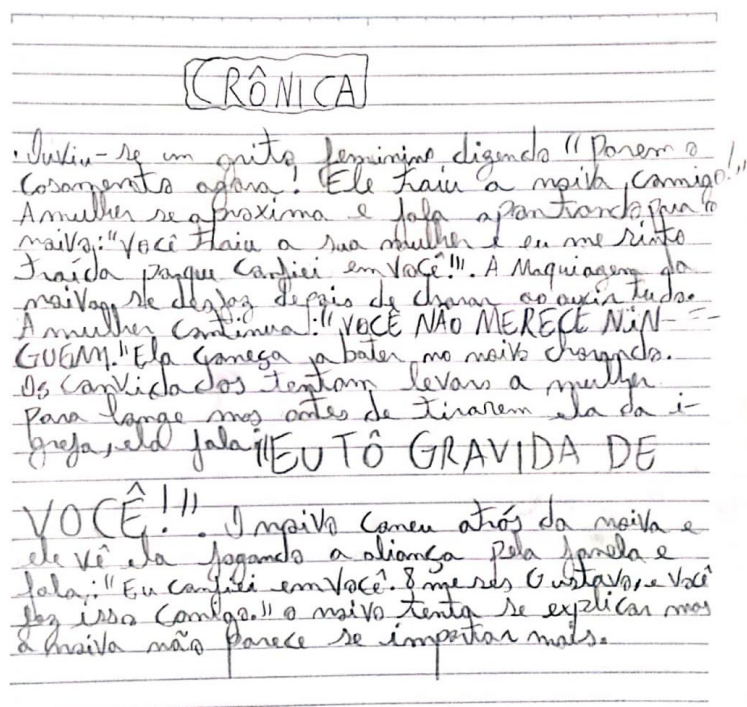 CRÔNICA
. Ouviu-se um grito feminino dizendo "Parem o
casamento agora! Ele traiu a noiva comigo!"
A mulher se aproxima e fala apontando para o
noivo: "Você traiu a sua mulher e eu me sinto
traída porque confiei em você!!!". A Maquiagem da
noiva se desfaz depois de chorar ao ouvir tudo.
A mulher continua: "VOCÊ NÃO MERECE NIN-
GUEM." Ela começa a bater no noivo chorando.
Os convidados tentam levar a mulher
Para longe mas antes de tirarem ela da i-
greja, ela fala: "EU TÔ GRAVIDA DE
VOCÊ!!". O noivo correu atrás da noiva e
ele vê ela jogando a aliança pela janela e
fala: "Eu confiei em você. 8 meses Gustavo, e você
faz isso comigo." o noivo tenta se explicar mas
a noiva não parece se importar mais.